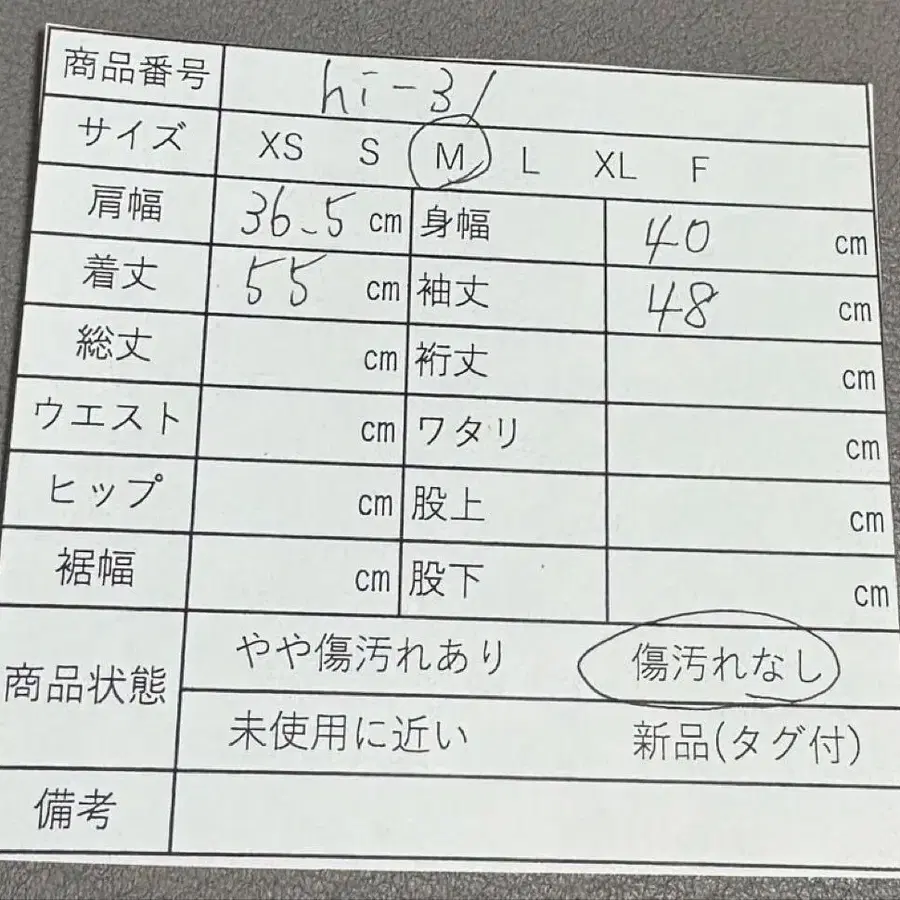 商品番号 hi-31
サイズ XS S M L XL F
肩幅 36.5 cm 身幅 40 cm
着丈 55 cm 袖丈 48 cm
総丈 cm 裄丈 cm
ウエスト cm ワタリ cm
ヒップ cm 股上 cm
裾幅 cm 股下 cm
商品状態 やや傷汚れあり 傷汚れなし
未使用に近い 新品(タグ付)
備考